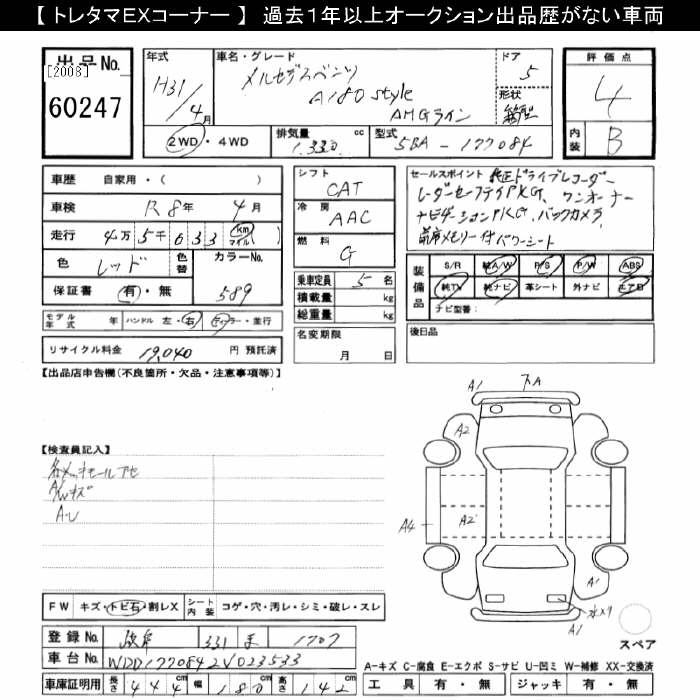 【 トレタマEXコーナー 】 過去1年以上オークション出品歴がない車両
出品No.
[2008]
60247
年式
H31/4月
車名・グレード
メルセデスベンツ
A180 style
AMGライン
ドア
5
形状
箱型
評価点
4
内装
B
2WD・4WD
排気量 1.330 cc
型式 5BA-177084
車歴 自家用・( )
車検 R8年4月
走行 4万5千633 km マイル ( )
色 レッド
色替
カラーNo.
589
保証書 有・無
モデル年式 年
ハンドル 左・右
ディーラー・並行
リサイクル料金 19,040 円 預託済
シフト
CAT
冷房
AAC
燃料
G
乗車定員 5 名
積載量 kg
総重量 kg
名変期限
月 日
セールスポイント 純正ドライブレコーダー
レーダーセーフティPKG、ワンオーナー
ナビゲーションPKG、バックカメラ
前席メモリー付パワーシート
装備品
S/R 純A/W P/S P/W ABS
純TV 純ナビ 革シート 外ナビ エアB
ナビ型番:
後日品
【出品店申告欄(不良箇所・欠品・注意事項等)】
【検査員記入】
A/Wキズ
A・U
A1
下A
A2
A4
A2
A1
A1
スペア
FW キズ・トビ石・割レX
シート内装 コゲ・穴・汚レ・シミ・破レ・スレ
登録No. 331 1707
車台No. WDD1770842V023533
車庫証明用 長さ 444 幅 180 高さ 142
A-キズ C-腐食 E-エクボ S-サビ U-凹ミ W-補修 XX-交換済
工具 有・無 ジャッキ 有・無